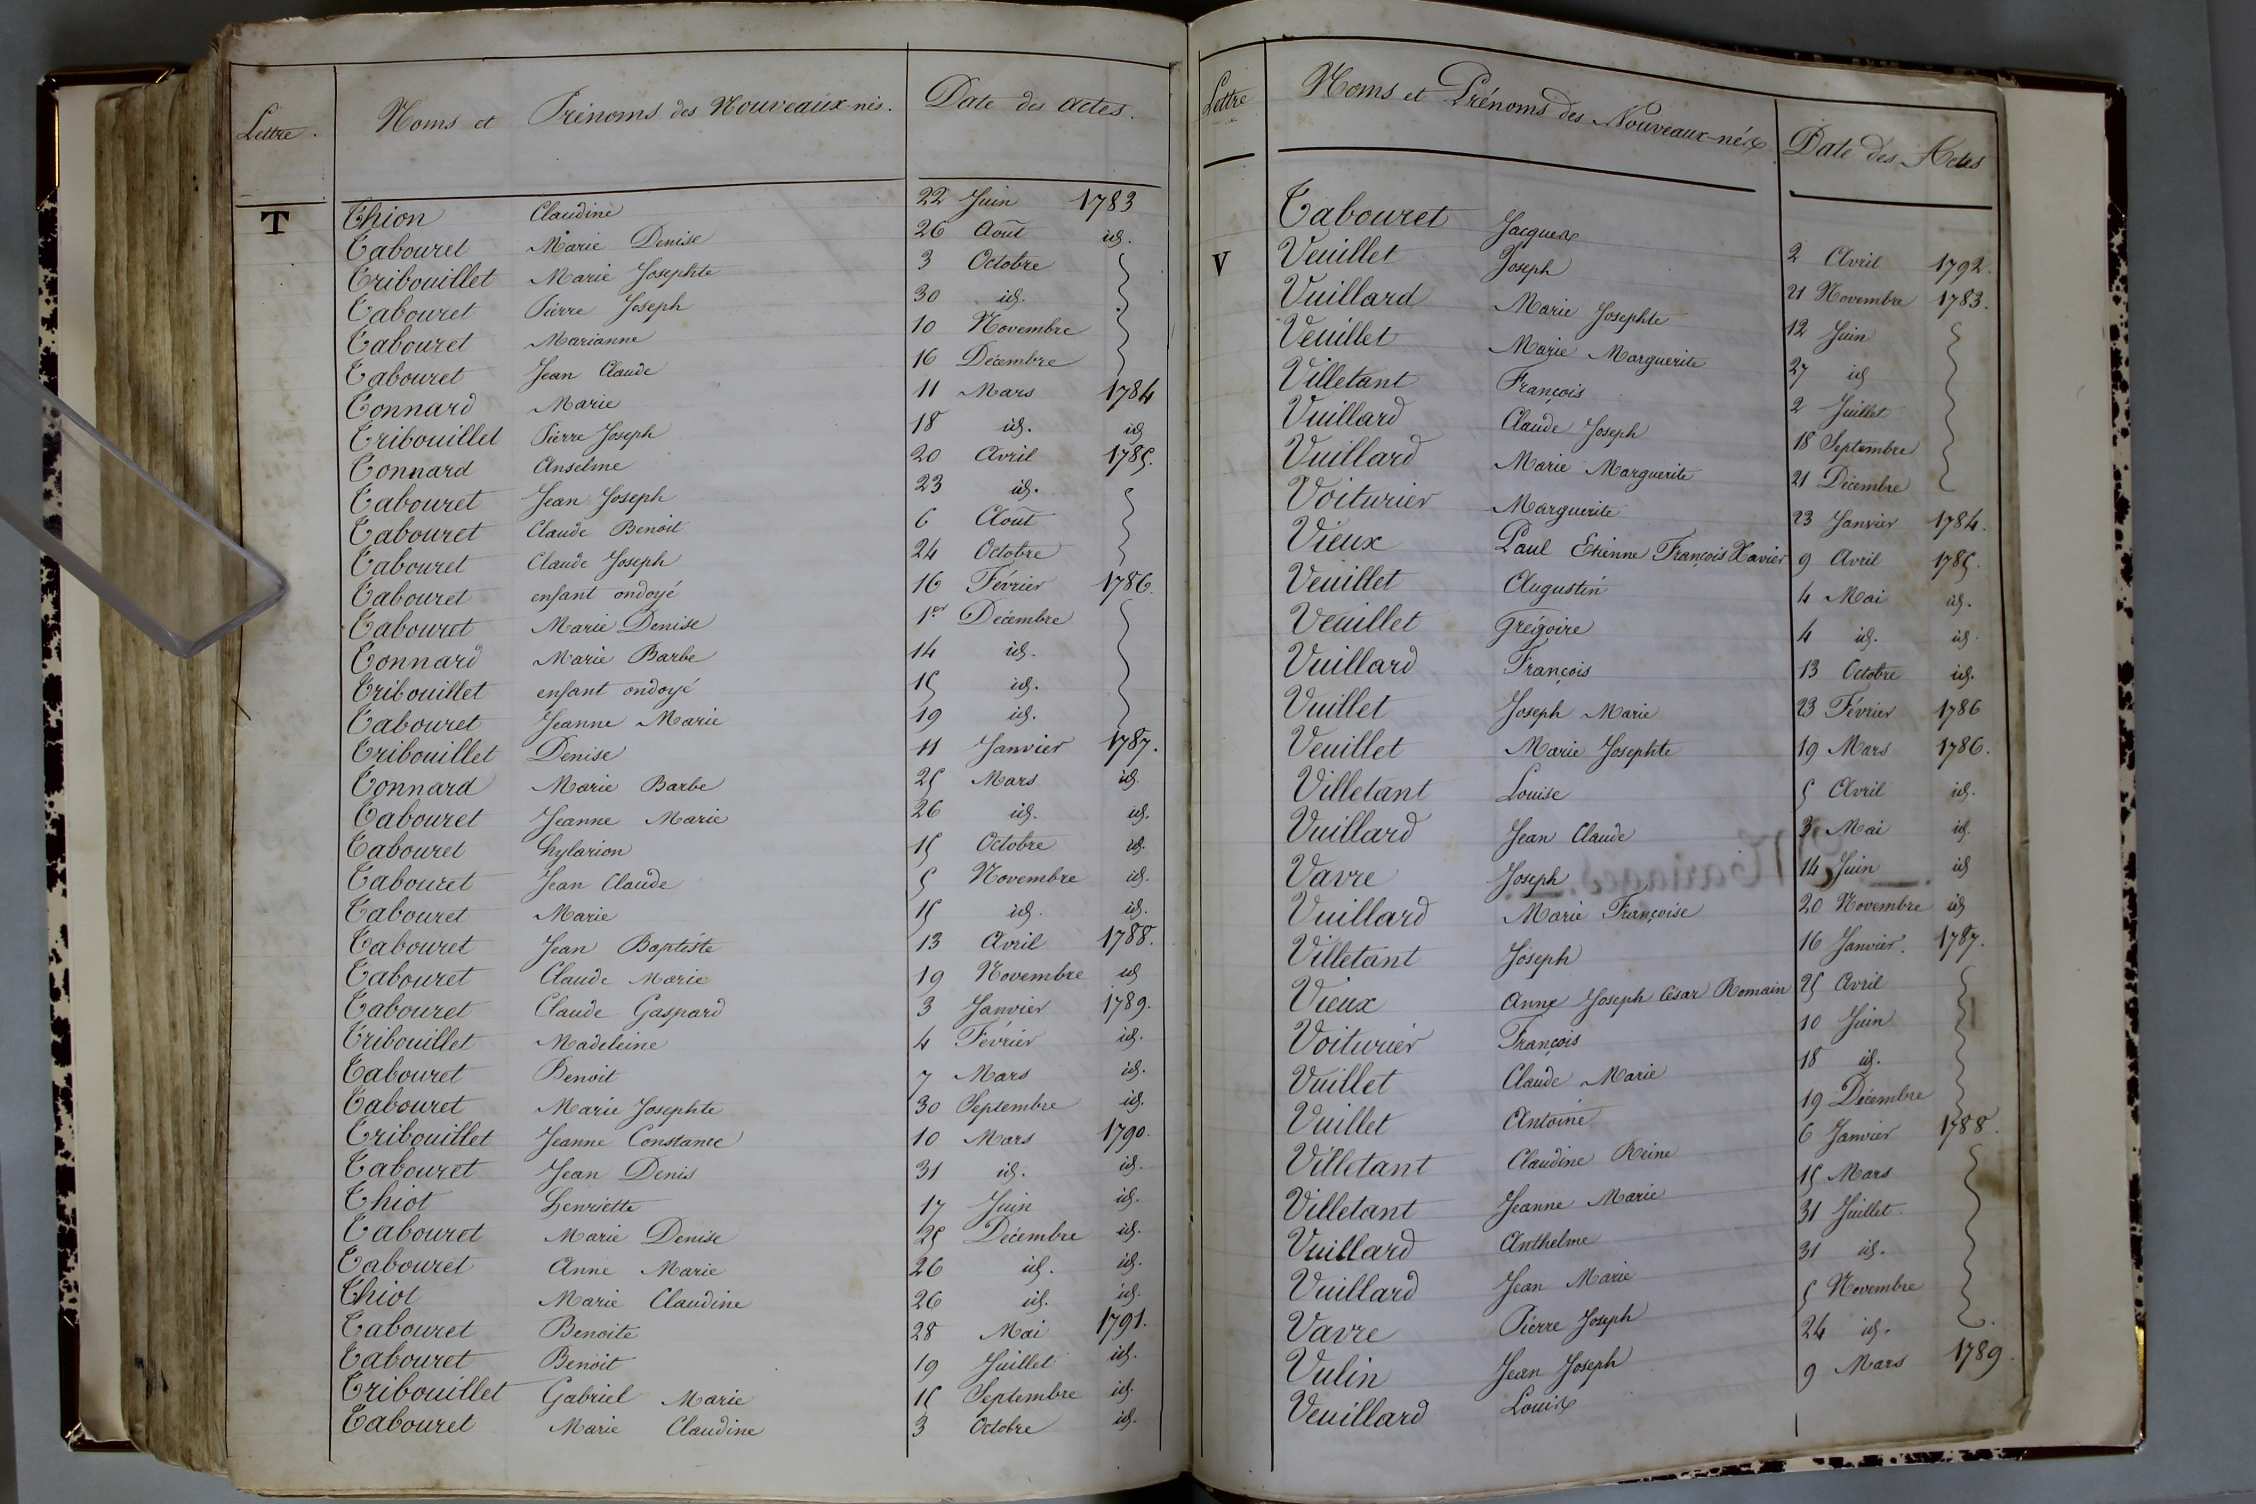 Lettre. Noms et Prénoms des Nouveaux-nés. Date des actes.
T Thion Claudine 22 Juin 1783
Tabouret Marie Denise 26 Aout id.
Tribouillet Marie Josephte 3 Octobre
Tabouret Pierre Joseph 30 id.
Tabouret Marianne 10 Novembre
Tabouret Jean Claude 16 Décembre
Tonnard Marie 11 Mars 1784
Tribouillet Pierre Joseph 18 id. id
Tonnard Anselme 20 Avril 1785.
Tabouret Jean Joseph 23 id.
Tabouret Claude Benoit 6 Aout
Tabouret Claude Joseph 24 Octobre
Tabouret enfant ondoyé 16 Février 1786.
Tabouret Marie Denise 1er Décembre
Tonnard Marie Barbe 14 id.
Tribouillet enfant ondoyé 15 id.
Tabouret Jeanne Marie 19 id.
Tribouillet Denise 11 Janvier 1787.
Tonnard Marie Barbe 25 Mars id.
Tabouret Jeanne Marie 26 id. id.
Tabouret hylarion 15 Octobre id.
Tabouret Jean Claude 5 Novembre id.
Tabouret Marie 15 id. id.
Tabouret Jean Baptiste 13 Avril 1788.
Tabouret Claude Marie 19 Novembre id
Tabouret Claude Gaspard 3 Janvier 1789.
Tribouillet Madeleine 4 Février id.
Tabouret Benoit 7 Mars id.
Tabouret Marie Josephte 30 Septembre id.
Tribouillet Jeanne Constance 10 Mars 1790.
Tabouret Jean Denis 31 id. id.
Thiot henriette 17 Juin id.
Tabouret Marie Denise 25 Décembre id.
Tabouret Anne Marie 26 id. id.
Thiot Marie Claudine 26 id. id.
Tabouret Benoite 28 Mai 1791.
Tabouret Benoit 19 Juillet id.
Tribouillet Gabriel Marie 15 Septembre id.
Tabouret Marie Claudine 3 Octobre id.
Lettre Noms et Prénoms des Nouveaux-nés Date des Actes
Tabouret Jacques 2 Avril 1792.
V Veuillet Joseph 21 Novembre 1783.
Vuillard Marie Josephte 12 Juin
Veuillet Marie Marguerite 27 id
Villetant François 2 Juillet
Vuillard Claude Joseph 18 Septembre
Vuillard Marie Marguerite 21 Décembre
Voiturier Marguerite 23 Janvier 1784.
Vieux Paul Etienne François Xavier 9 Avril 1785.
Veuillet Augustin 4 Mai id.
Veuillet Grégoire 4 id. id.
Vuillard François 13 Octobre id.
Vuillet Joseph Marie 23 Février 1786
Veuillet Marie Josephte 19 Mars 1786.
Villetant Louise 5 Avril id.
Vuillard Jean Claude 3 Mai id.
Vavre Joseph 14 Juin id
Vuillard Marie Françoise 20 Novembre id
Villetant Joseph 16 Janvier. 1787.
Vieux Anne Joseph César Romain 25 Avril
Voiturier François 10 Juin
Vuillet Claude Marie 18 id.
Vuillet Antoine 19 Décembre
Villetant Claudine Reine 6 Janvier 1788.
Villetant Jeanne Marie 15 Mars
Vuillard Anthelme 31 Juillet
Vuillard Jean Marie 31 id.
Vavre Pierre Joseph 5 Novembre
Vulin Jean Joseph 24 id.
Veuillard Louis 9 Mars 1789.